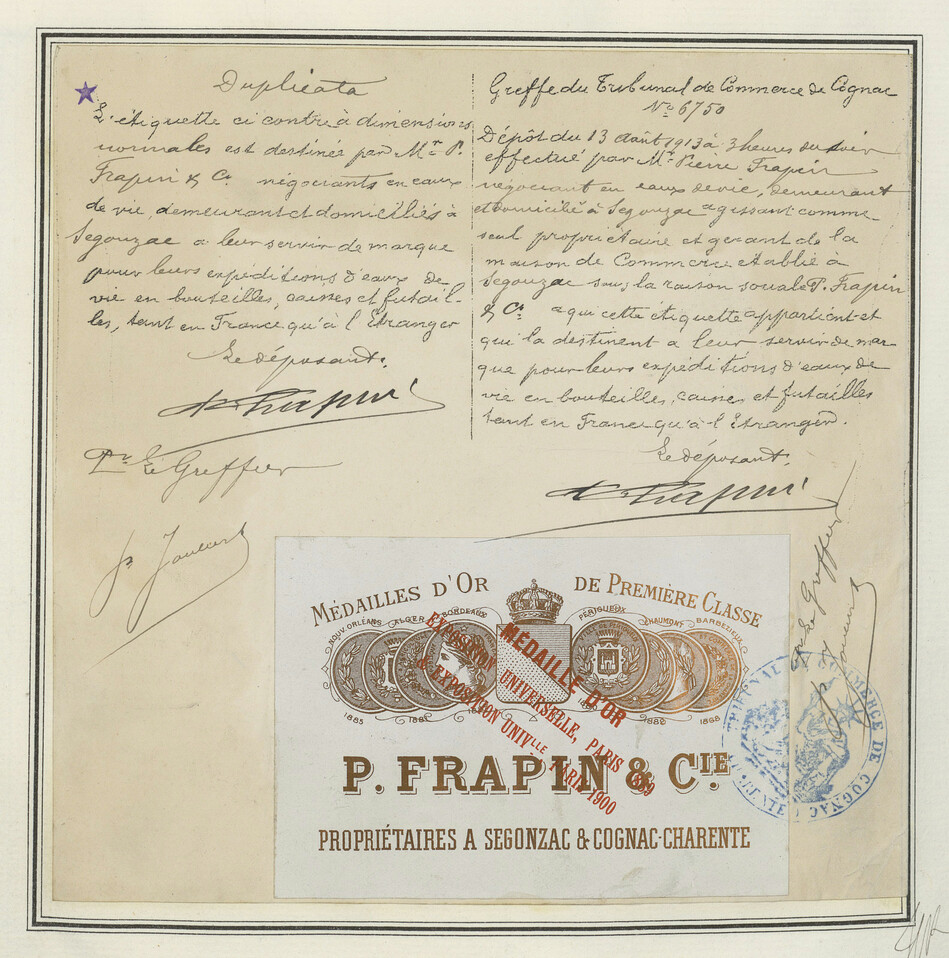 Duplicata
L'étiquette ci contre à dimensions
normales est destinée par Mr. P.
Frapin & Cie négociants en eaux
de vie, demeurant et domiciliés à
Segonzac a leur servir de marque
pour leurs expéditions d'eaux de
vie en bouteilles, caisses et futail-
les, tant en France qu'à l'Etranger
Le déposant.
P. Frapin
Pr. Le Greffier
Greffe du Tribunal de Commerce de Cognac
No 6750
Dépôt du 13 Août 1913 à 3 heures du soir
effectué par Mr. Pierre Frapin
négociant en eaux de vie, demeurant
et domicilié à Segonzac agissant comme
seul propriétaire et gérant de la
maison de Commerce etablie à
Segonzac sous la raison sociale P. Frapin
& Cie a qui cette étiquette appartient et
qui la destinent a leur servir de mar-
que pour leurs expéditions d'eaux de
vie en bouteilles, caisses et futailles
tant en France qu'à l'Etranger.
Le déposant.
P. Frapin
Le Greffier
MÉDAILLES D'OR DE PREMIÈRE CLASSE
NOUV. ORLÉANS ALGER BORDEAUX PÉRIGUEUX CHAUMONT BARBEZIEUX
1885
MÉDAILLE D'OR
EXPOSITION UNIVERSELLE, PARIS 1889
& EXPOSITION UNIVLLE PARIS 1900
P. FRAPIN & CIE.
PROPRIÉTAIRES A SEGONZAC & COGNAC-CHARENTE
TRIBUNAL DE COMMERCE DE COGNAC
CHARENTE